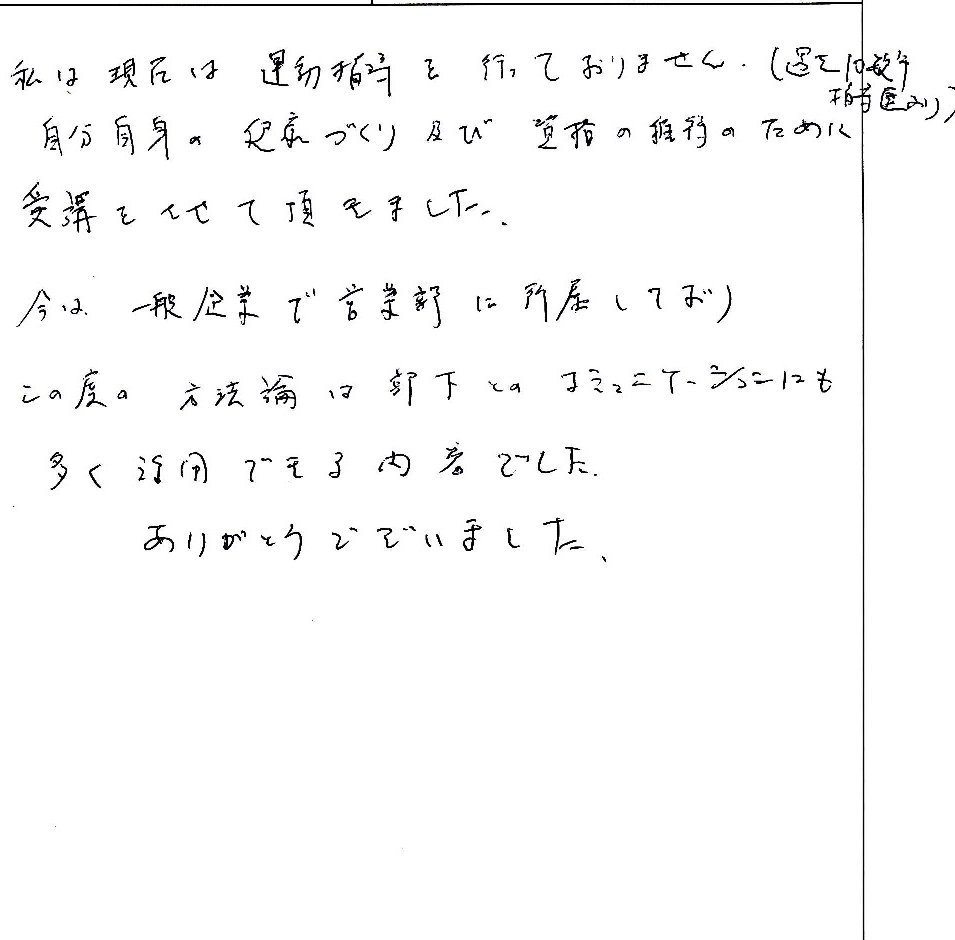 私は現在は運動指導を行っておりません。(過去10数年
指導歴あり)
自分自身の健康づくり及び資格の維持のために
受講させて頂きました。
今は一般企業で営業部に所属しており
この度の方法論は部下とのコミュニケーションにも
多く活用できる内容でした。
ありがとうございました。